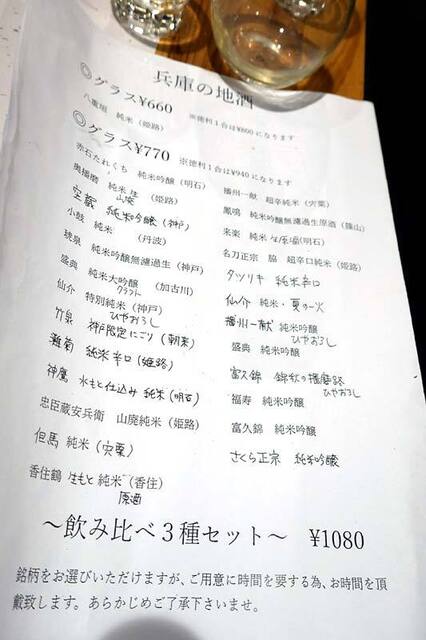 兵庫の地酒
◎グラス¥660 ※徳利1合は¥800になります
八重垣 純米(姫路)
◎グラス¥770 ※徳利1合は¥940になります
赤石たれくち 純米吟醸(明石)
奥播磨 純米生(姫路)
山廃
空蔵 純米吟醸(神戸)
小鼓 純米 (丹波)
琥泉 純米吟醸無濾過生(神戸)
盛典 純米大吟醸 (加古川)
クラフト
仙介 特別純米(神戸)
ひやおろし
竹泉 神戸限定にごり(朝来)
灘菊 純米辛口(姫路)
神鷹 水もと仕込み 純米(明石)
忠臣蔵安兵衛 山廃純米(姫路)
但馬 純米(宍粟)
香住鶴 生もと純米(香住)
原酒
播州一献 超辛純米(宍粟)
鳳鳴 純米吟醸無濾過生原酒(篠山)
来楽 純米生原酒(明石)
名刀正宗 脇 超辛口純米(姫路)
タツリキ 純米辛口
仙介 純米・夏の一火
播州一献 純米吟醸
ひやおろし
盛典 純米吟醸
富久錦 錦秋の播磨路
ひやおろし
福寿 純米吟醸
富久錦 純米吟醸
さくら正宗 純米吟醸
～飲み比べ3種セット～ ¥1080
銘柄をお選びいただけますが、ご用意に時間を要する為、お時間を頂
戴致します。あらかじめご了承下さいませ。